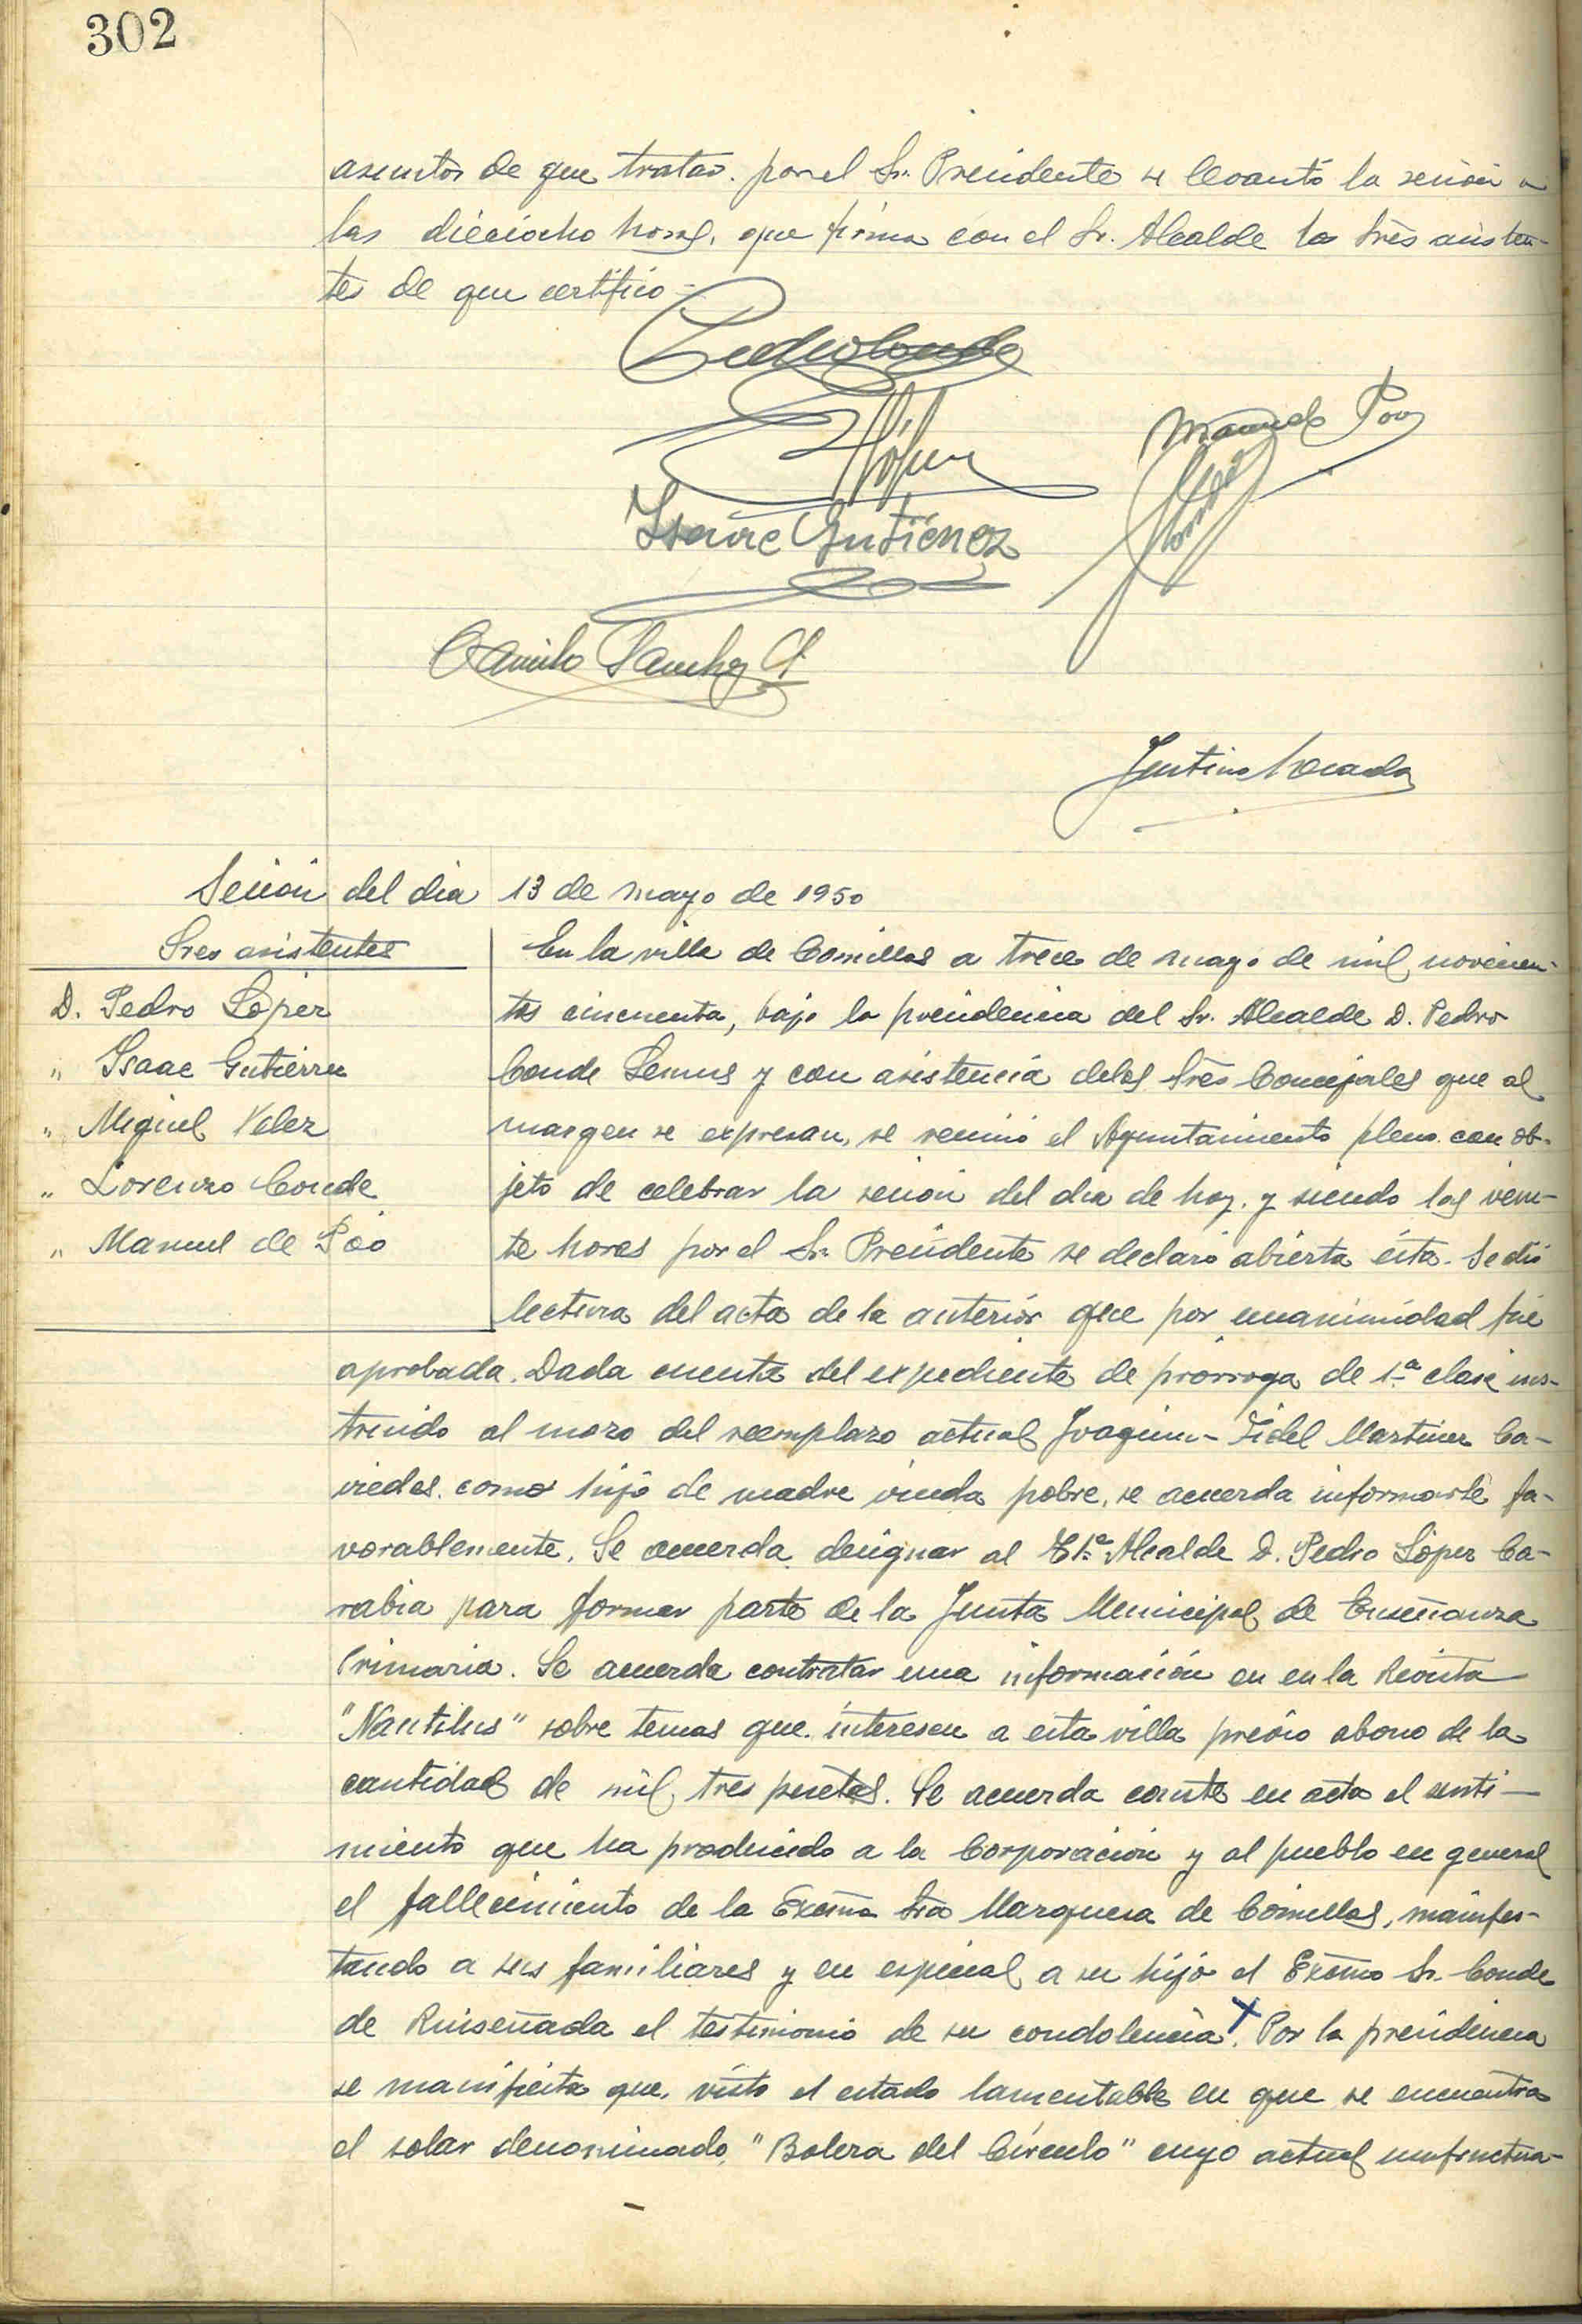 302
asuntos de que tratar. por el Sr. Presidente se levantó la sesión a
las dieciocho horas, que firma con el Sr. Alcalde los Srès asisten-
tes de que certifico-
Pedro Conde
PLópez
Manuel Poo
Isaac Gutiérrez
Camilo Sanchez
Justino
Sesión del dia 13 de mayo de 1950
Sres asistentes
D. Pedro López
" Isaac Gutierrez
" Miguel Velez
" Lorenzo Conde
" Manuel de Póo
En la villa de Comillas a trece de mayo de mil novecien-
tos cincuenta, bajo la presidencia del Sr. Alcalde D. Pedro
Conde Lemus y con asistencia delos Srès Concejales que al
margen se expresan, se reunió el Ayuntamiento pleno con ob-
jeto de celebrar la sesion del dia de hoy. y siendo las vein-
te horas por el Sr. Presidente se declaró abierta ésta. Se dió
lectura del acta de la anterior que por unanimidad fué
aprobada. Dada cuenta del expediente de prórroga de 1ª clase ins-
truido al mozo del reemplazo actual Joaquin-Fidel Martinez Ca-
viedes. como hijo de madre viuda pobre, se acuerda informarle fa-
vorablemente. Se acuerda designar al Alcalde D. Pedro López Ca-
rabia para formar parte de la Junta Municipal de Enseñanza
Primaria. Se acuerda contratar una información en en la Revista
"Nautilus" sobre temas que interesen a esta villa previo abono de la
cantidad de mil tres pesetas. Se acuerda conste en acta el senti-
miento que ha producido a la Corporación y al pueblo en general
el fallecimiento de la Excma Sra Marquesa de Comillas, manifes-
tando a sus familiares y en especial a su hijo el Excmo Sr. Conde
de Ruiseñada el testimonio de su condolencia. Por la presidencia
se manifiesta que, visto el estado lamentable en que se encuentra
el solar denominado "Bolera del Círculo" cuyo actual usufructua-